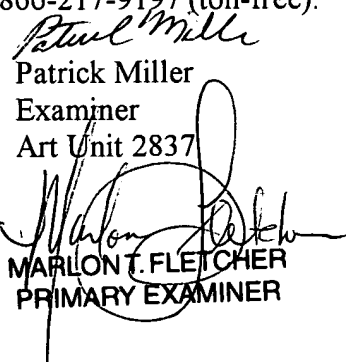 866-217-9197 (toll-free).
Patrick Miller
Patrick Miller
Examiner
Art Unit 2837
Marlon Fletcher
MARLON T. FLETCHER
PRIMARY EXAMINER